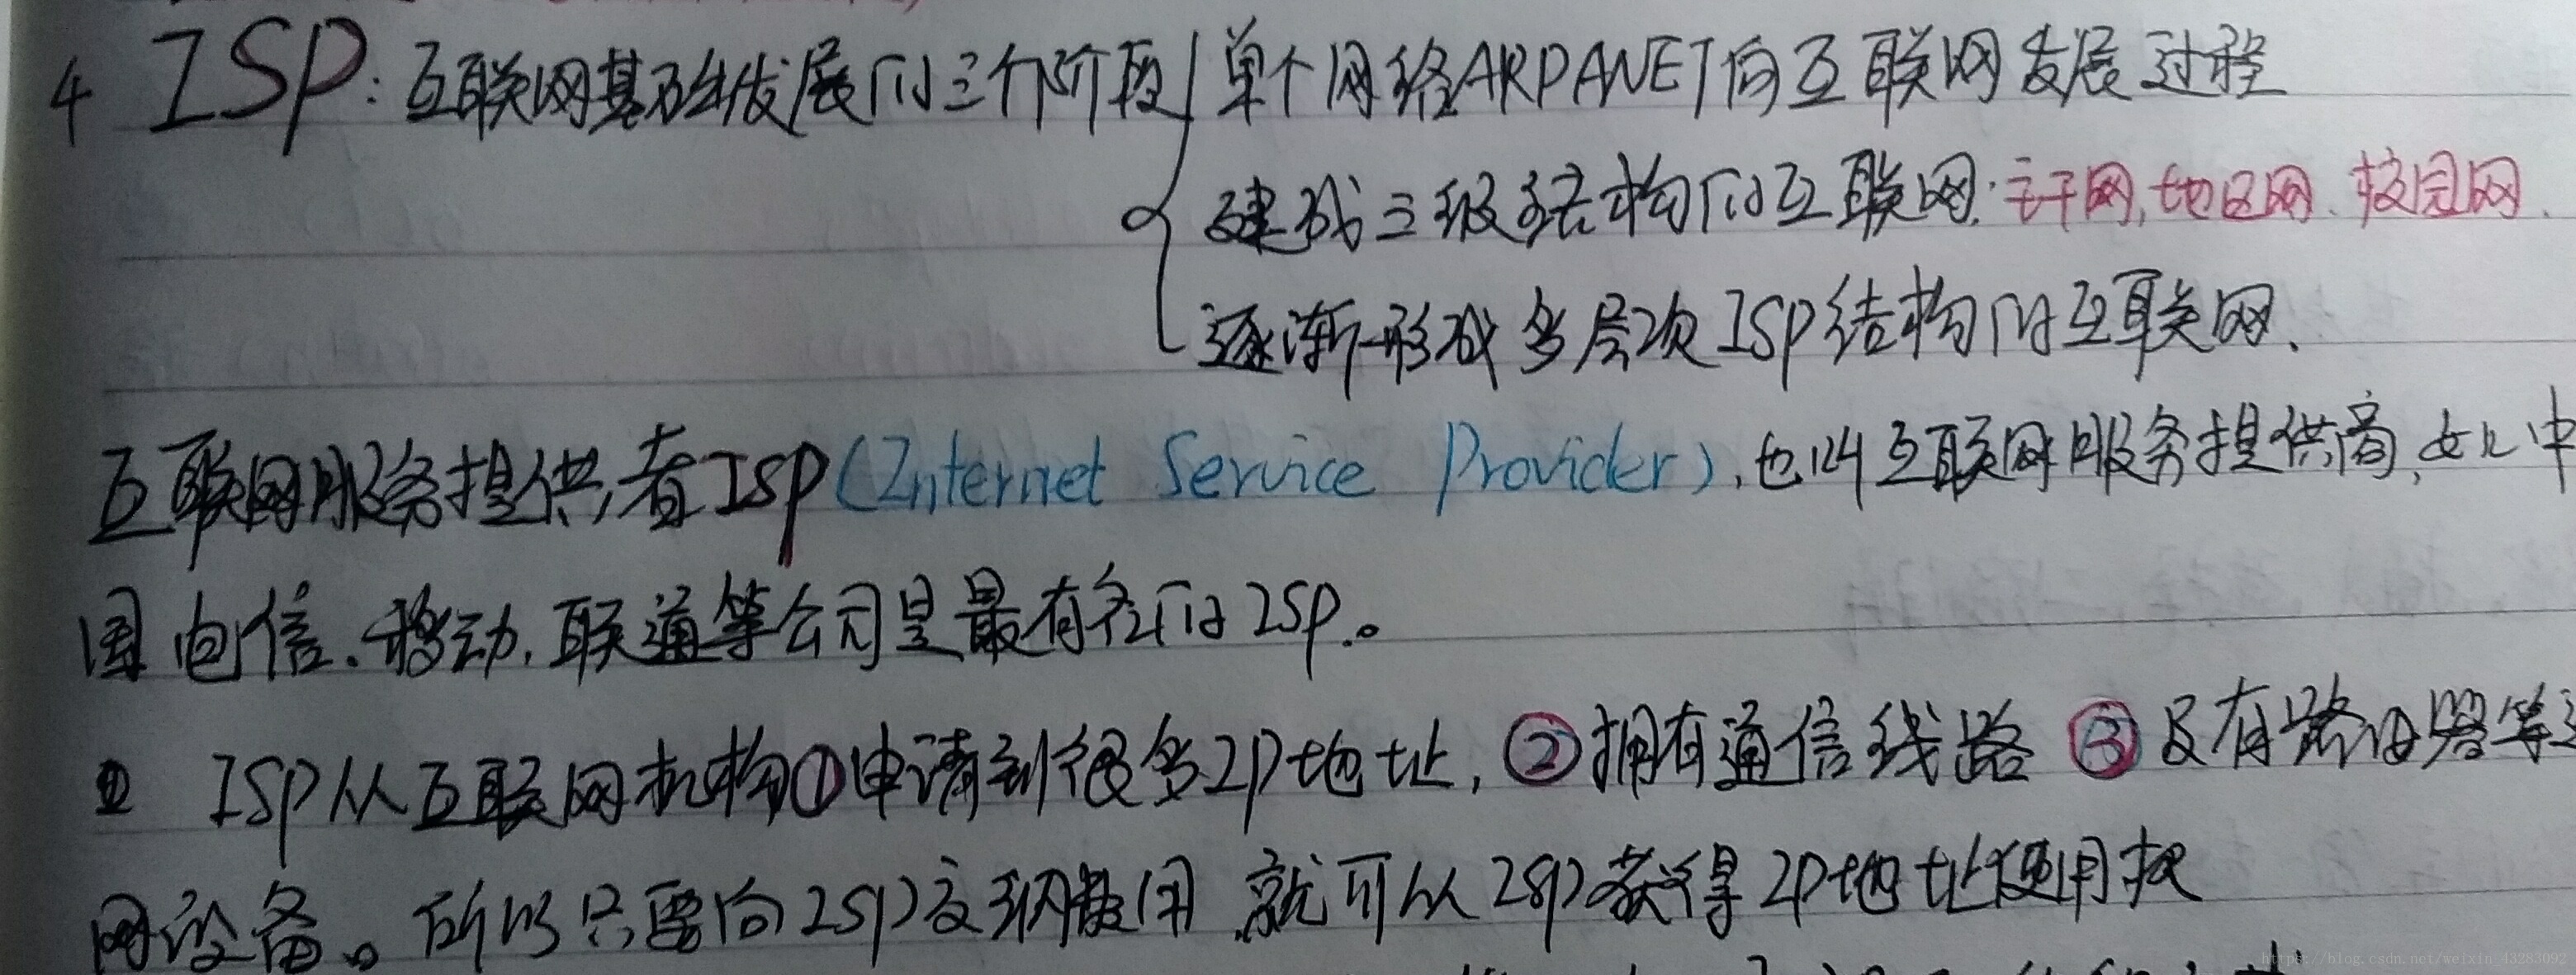 4 ISP：互联网基础发展的三个阶段 单个网络ARPANET向互联网发展过程
建成三级结构的互联网：主干网，地区网、校园网.
逐渐形成多层次ISP结构的互联网.
互联网服务提供者ISP(Internet Service Provider)，也叫互联网服务提供商，如中
国电信、移动，联通等公司是最有名的ISP。
ISP从互联网机构①申请到很多IP地址，②拥有通信线路 ③及有路由器等
网设备。所以只要向ISP交纳费用 就可从ISP获得IP地址使用权
https://blog.csdn.net/weixin_43283092